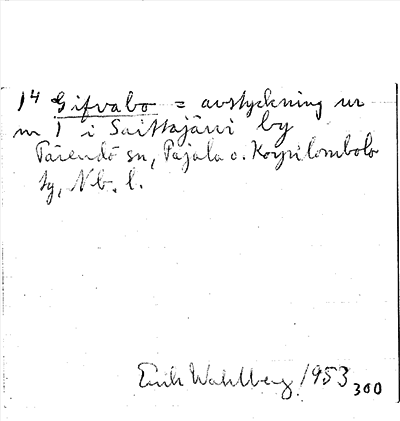 1⁴ Gifvabo = avstyckning ur
m 1 i Saittajärvi by
Tärendö sn, Pajala o. Korpilombolo
tg, Nb. l.
Erik Wahlberg 1953
300